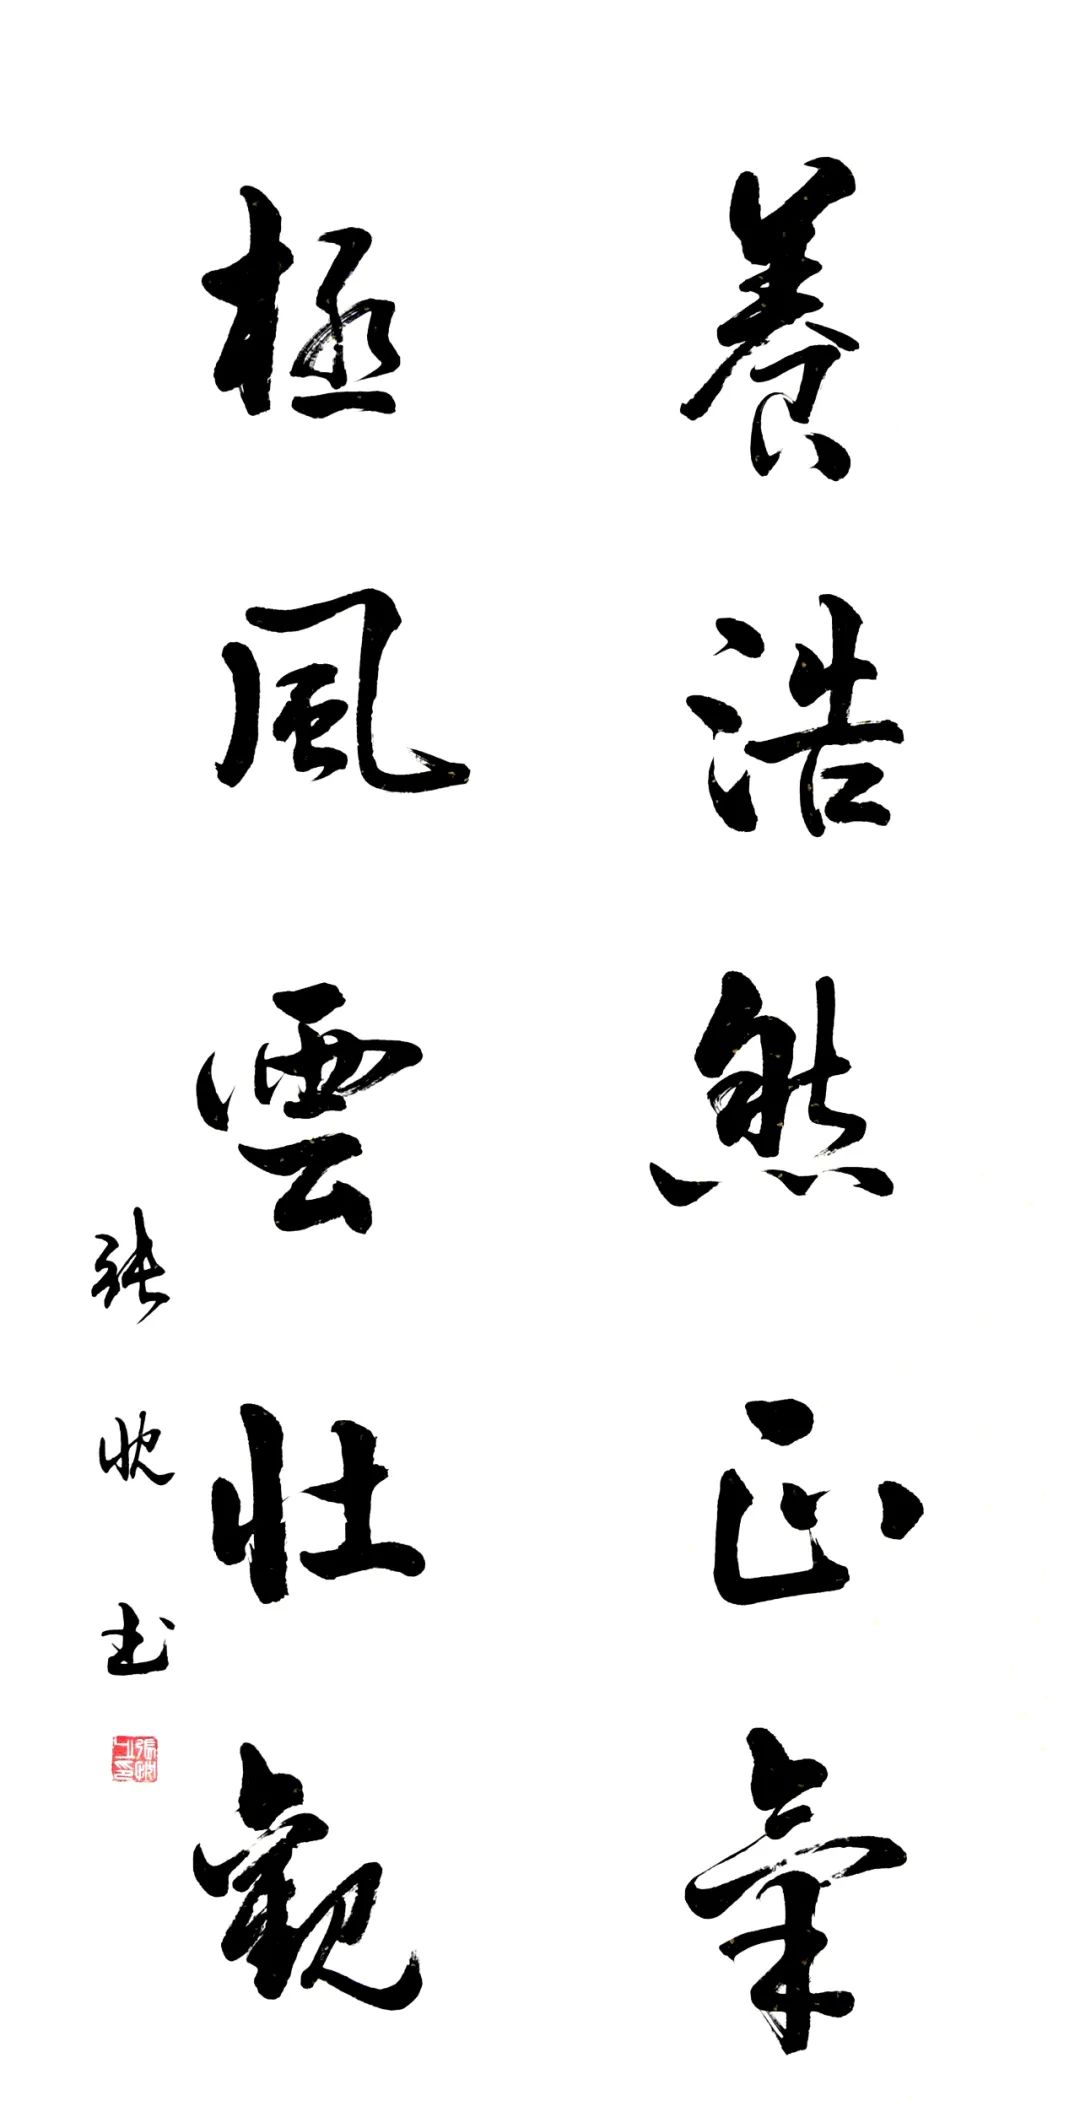 養浩然正氣
極風雲壯觀
張忱書